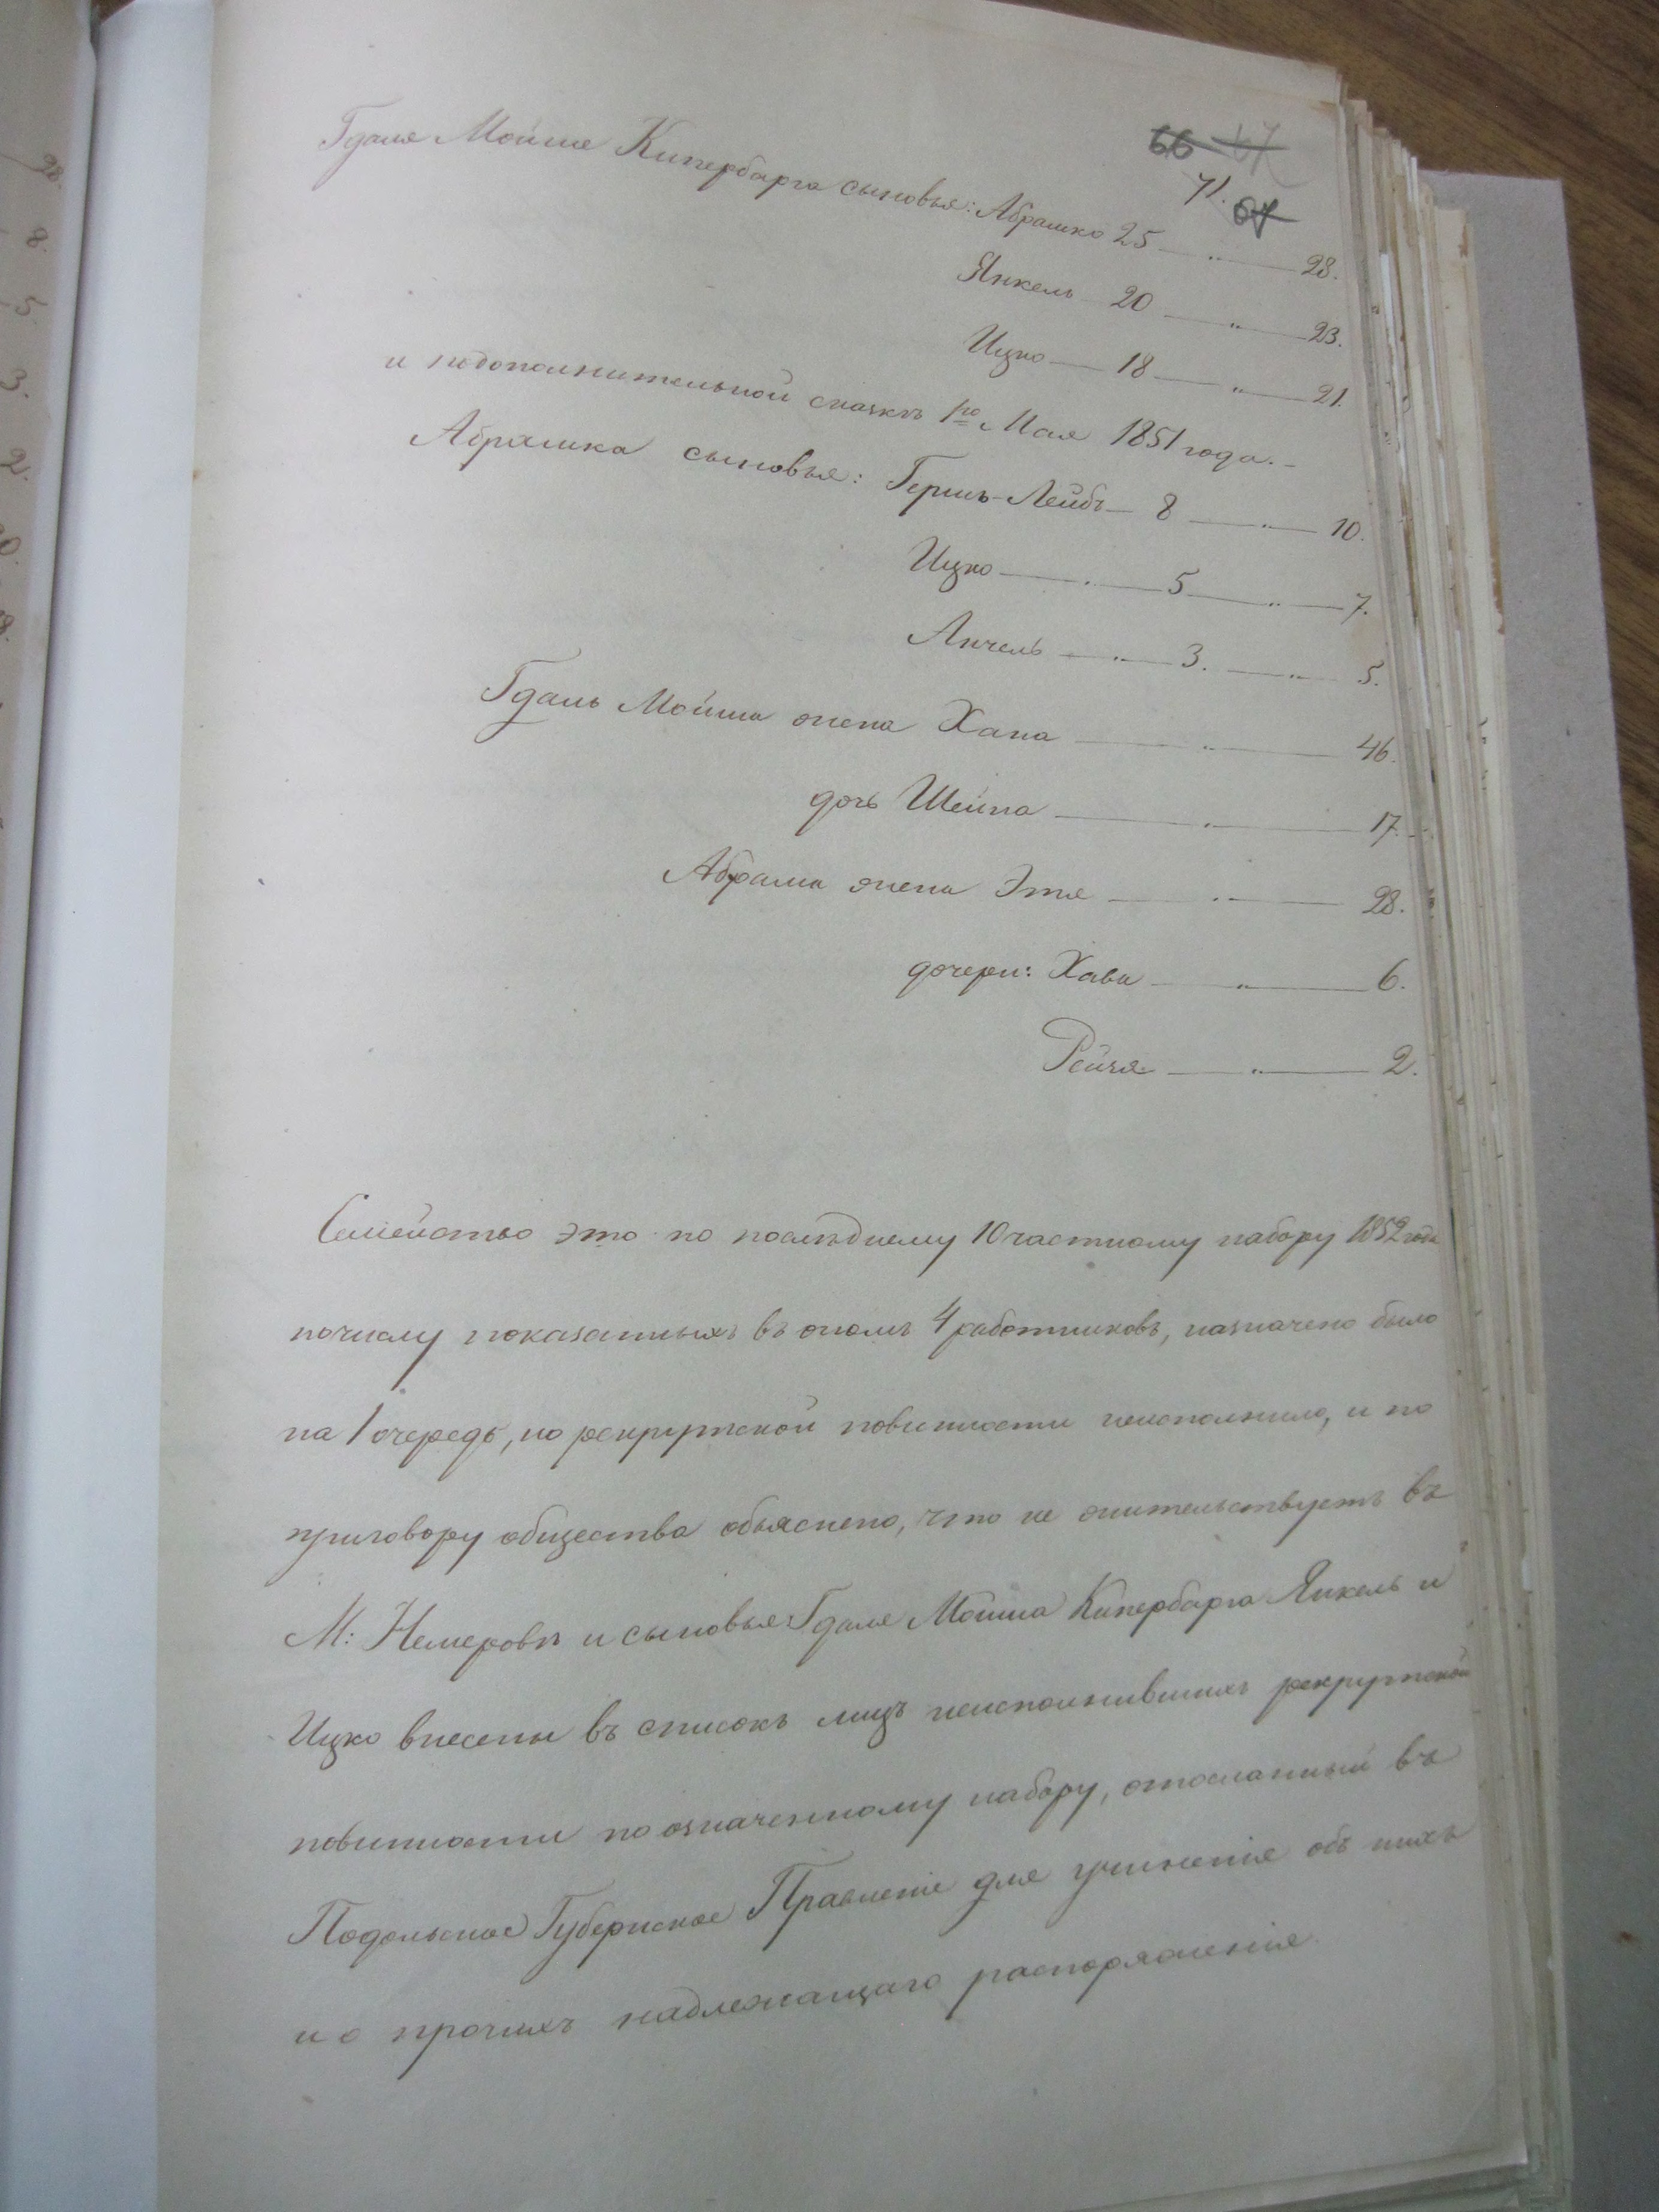 66 67
71. 67
Гдаля Мойше Кипербарга сыновья: Абрашко 25 — „ — 28.
Янкель 20 — „ — 23.
Ицко — 18 — „ — 21.
и подополнительной сказкѣ 1го Мая 1851 года. –
Абрашка сыновья: Гершь-Лейбъ — 8 — „ — 10.
Ицко — „ — 5 — „ — 7.
Анчель — „ — 3. — „ — 5.
Гдаль Мойша жена Хана — „ — 46.
дочь Шейна — „ — 17.
Абрама жена Этя — „ — 28.
дочери: Хава — „ — 6.
Рейзя — „ — 2.
Семейство это по послѣднему 10 частному набору 1852 года
почислу показанныхъ въ ономъ 4 работниковъ, назначено было
на 1 очередь, но рекрутской повинности неисполнило, и по
приговору общества объяснено, что не жительствуетъ въ
М: Немеровѣ и сыновья Гдаля Мойша Кипербарга Янкель и
Ицко внесены въ списокъ лицъ неисполнившихъ рекрутской
повинности по означенному набору, отосланный въ
Подольское Губернское Правленіе для учиненія объ нихъ
и о прочихъ надлежащаго распоряженія
28.
8.
5.
3.
2.